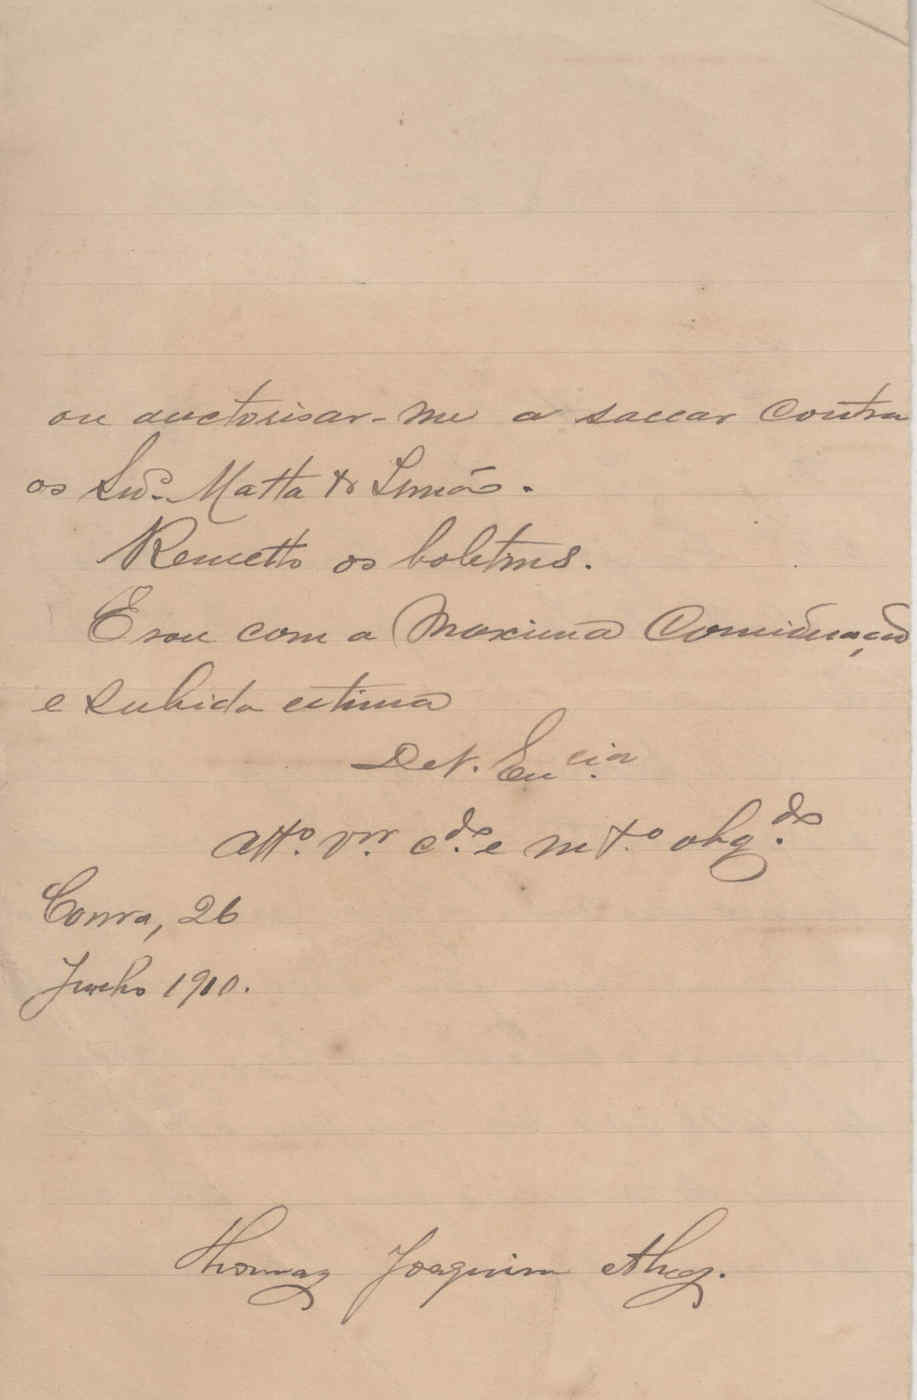 ou auctorisar-me a saccar contra
os Snr.s Matta & Irmão.
Remetto os boletins.
E sou com a maxima consideração
e subida estima
De V. Ex cia
Att.º Vnr. c.do e mt.º obg.do
26
Junho 1910.
Thomaz Joaquim